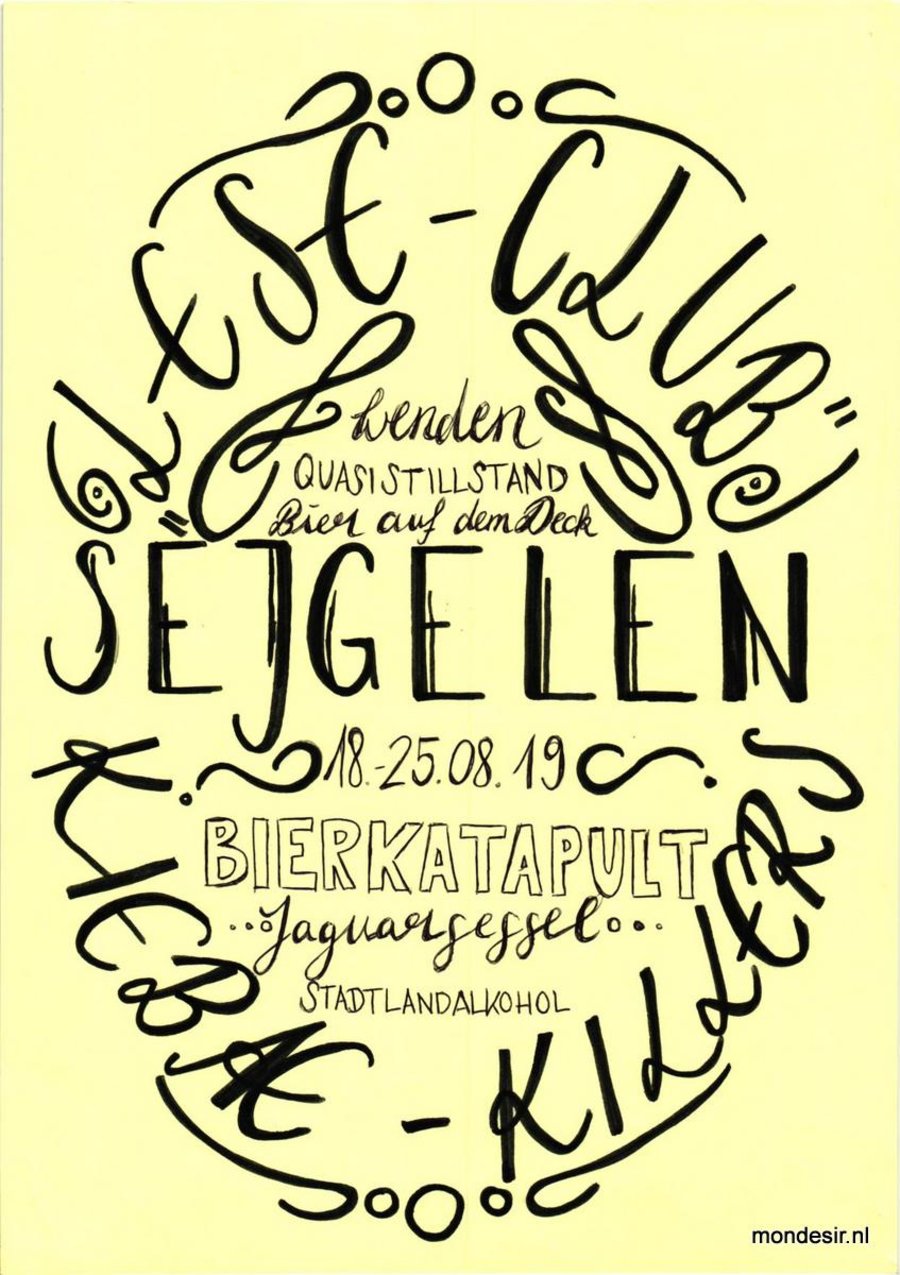 "LESE-CLUB"
wenden
QUASISTILLSTAND
Bier auf dem Deck
SEJGELEN
18.-25.08.19
BIERKATAPULT
Jaguarsessel
STADTLANDALKOHOL
KJEBÆ-KILLERS
mondesir.nl